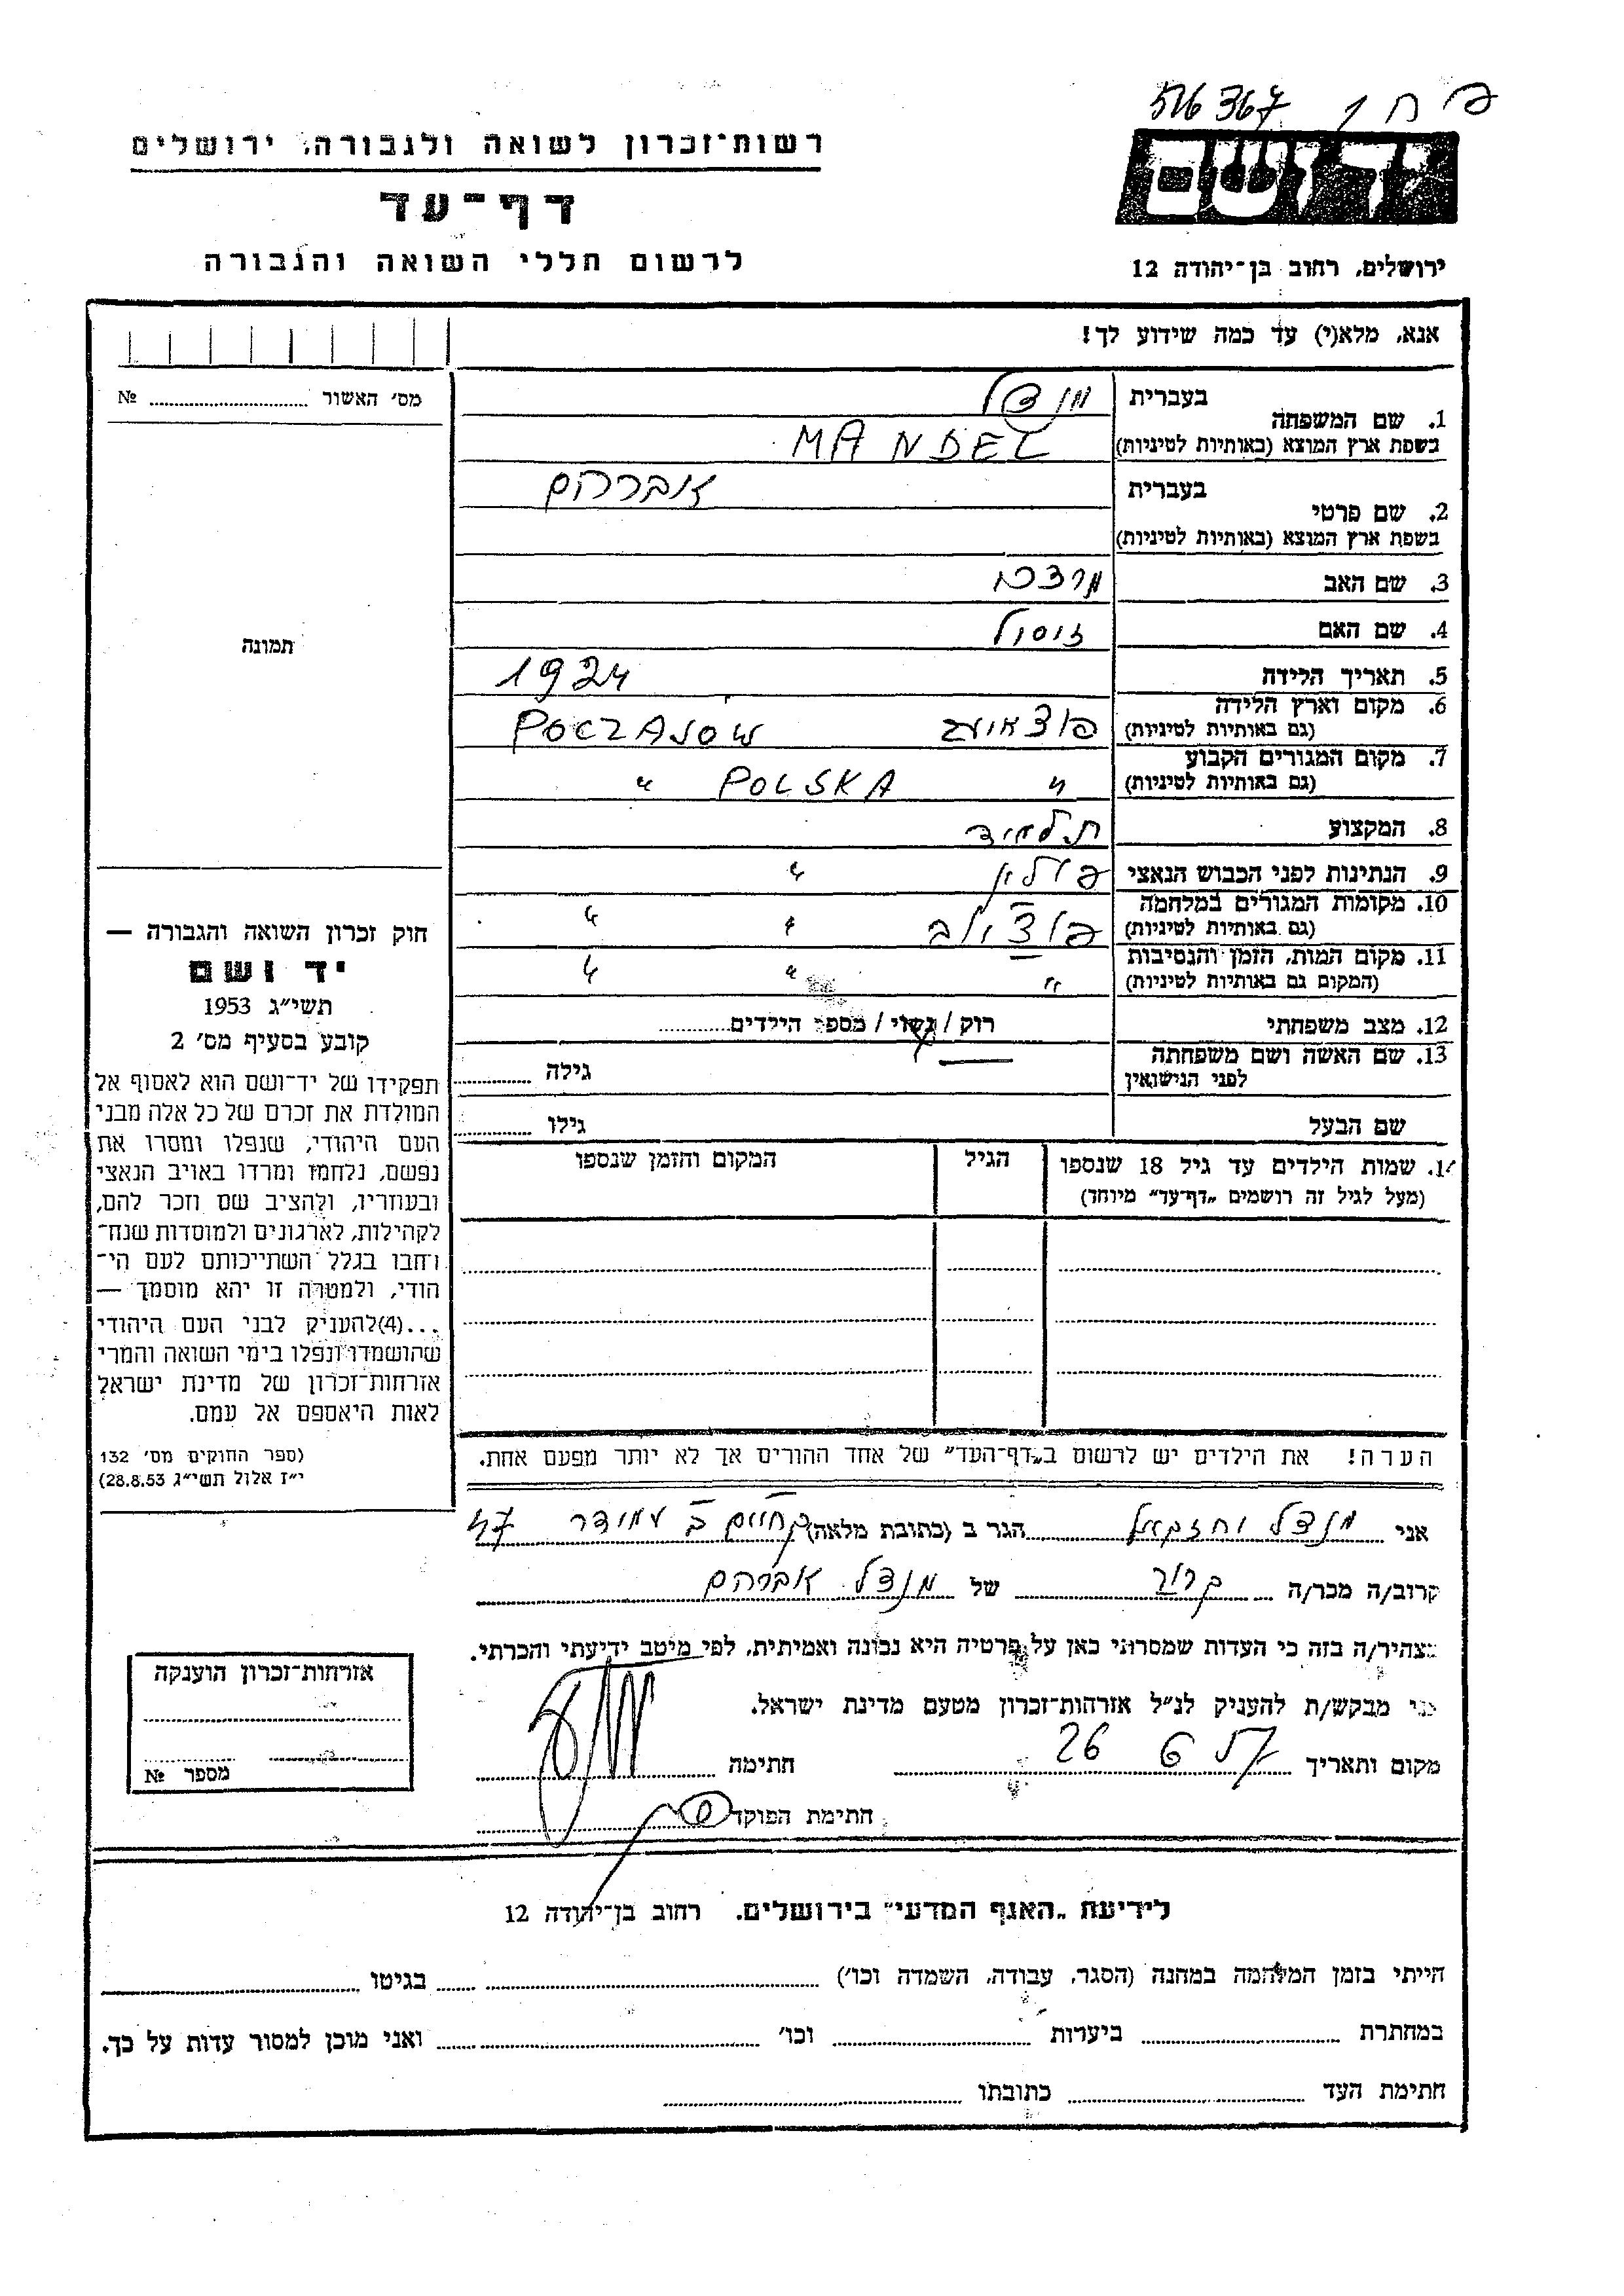 פ ח 1 516367
רשות־זכרון לשואה ולגבורה, ירושלים
יד ושם
דף־עד
לרשום חללי השואה והגבורה
ירושלים, רחוב בן־יהודה 12
אנא, מלא(י) עד כמה שידוע לך!
מס׳ האשור № 
1. שם המשפחה בעברית מנדל
בשפת ארץ המוצא (באותיות לטיניות) MANDEL
2. שם פרטי בעברית אברהם
בשפת ארץ המוצא (באותיות לטיניות)
3. שם האב מרדכי
4. שם האם זיסל
5. תאריך הלידה 1924
6. מקום וארץ הלידה (גם באותיות לטיניות) POCZAJOW
7. מקום המגורים הקבוע (גם באותיות לטיניות) " POLSKA "
8. המקצוע תלמיד
9. הנתינות לפני הכבוש הנאצי פולין "
10. מקומות המגורים במלחמה (גם באותיות לטיניות) " "
11. מקום המות, הזמן והנסיבות (המקום גם באותיות לטיניות) " " "
12. מצב משפחתי רוק / נשוי / מספר הילדים
13. שם האשה ושם משפחתה לפני הנישואין גילה
שם הבעל גילו
14. שמות הילדים עד גיל 18 שנספו הגיל המקום והזמן שנספו
(מעל לגיל זה רושמים „דף־עד” מיוחד)
תמונה
חוק זכרון השואה והגבורה —
יד ושם
תשי״ג 1953
קובע בסעיף מס׳ 2
תפקידו של יד־ושם הוא לאסוף אל
המולדת את זכרם של כל אלה מבני
העם היהודי, שנפלו ומסרו את
נפשם, נלחמו ומרדו באויב הנאצי
ובעוזריו, ולהציב שם וזכר להם,
לקהילות, לארגונים ולמוסדות שנח־
רחבו בגלל השתייכותם לעם הי־
הודי, ולמטרה זו יהא מוסמך —
...(4)להעניק לבני העם היהודי
שהושמדו ונפלו בימי השואה והמרי
אזרחות־זכרון של מדינת ישראל
לאות היאספם אל עמם.
(ספר החוקים מס׳ 132
י״ז אלול תשי״ג 28.8.53)
הערה! את הילדים יש לרשום ב„דף־העד” של אחד ההורים אך לא יותר מפעם אחת.
אני מנדל יחזקאל הגר ב (כתובת מלאה) 47
קרוב/ה מכר/ה קרוב של מנדל אברהם
מצהיר/ה בזה כי העדות שמסרתי כאן על פרטיה היא נכונה ואמיתית, לפי מיטב ידיעתי והכרתי.
אני מבקש/ת להעניק לנ״ל אזרחות־זכרון מטעם מדינת ישראל.
מקום ותאריך 26 6 חתימה
חתימת הפוקד
אזרחות־זכרון הוענקה
מספר №
לידיעת „האגף המדעי” בירושלים. רחוב בן־יהודה 12
הייתי בזמן המלחמה במחנה (הסגר, עבודה, השמדה וכו׳) בגיטו
במחתרת ביערות וכו׳ ואני מוכן למסור עדות על כך.
חתימת העד כתובתו